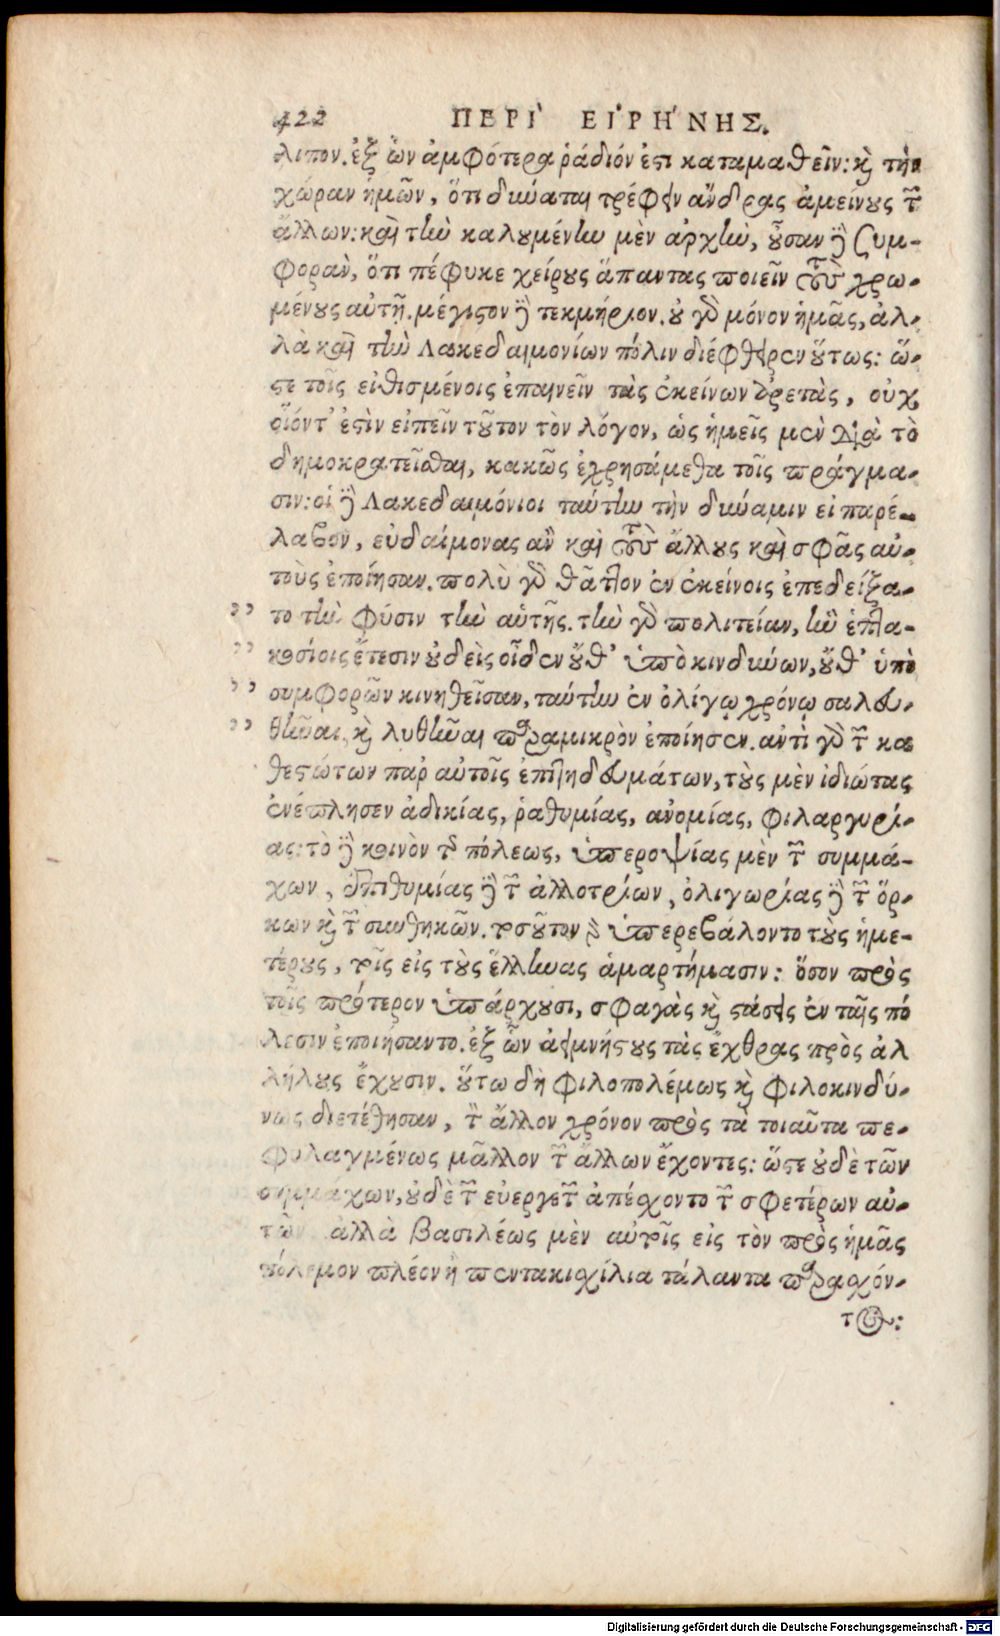 422 ΠΕΡΙ` ΕΙ'ΡΗ'ΝΗΣ.
λιπον. ἐξ ὧν ἀμφότερα ῥάδιόν ἐστι καταμαθεῖν: καὶ τὴν
χώραν ἡμῶν, ὅτι δύναται τρέφειν ἄνδρας ἀμείνους τῶν
ἄλλων: καὶ τὴν καλουμένην μὲν ἀρχὴν, οὖσαν δὲ συμ-
φορὰν, ὅτι πέφυκε χείρους ἅπαντας ποιεῖν τοὺς χρω-
μένους αὐτῇ. μέγιστον δὲ τεκμήριον. οὐ γὰρ μόνον ἡμᾶς, ἀλ-
λὰ καὶ τὴν Λακεδαιμονίων πόλιν διέφθειρεν οὕτως: ὥ-
στε τοῖς εἰθισμένοις ἐπαινεῖν τὰς ἐκείνων ἀρετὰς, οὐχ
οἷόντ' ἐστὶν εἰπεῖν τοῦτον τὸν λόγον, ὡς ἡμεῖς μὲν διὰ τὸ
δημοκρατεῖσθαι, κακῶς ἐχρησάμεθα τοῖς πράγμα-
σιν: οἱ δὲ Λακεδαιμόνιοι ταύτην τὴν δύναμιν εἰ παρέ-
λαβον, εὐδαίμονας ἂν καὶ τοὺς ἄλλους καὶ σφᾶς αὐ-
τοὺς ἐποίησαν. πολὺ γὰρ θᾶττον ἐν ἐκείνοις ἐπεδείξα-
,, το τὴν φύσιν τὴν αὑτῆς. τὴν γὰρ πολιτείαν, ἣν ἑπτα-
,, κοσίοις ἔτεσιν οὐδεὶς οἶδεν οὔθ' ὑπὸ κινδύνων, οὔθ' ὑπὸ
,, συμφορῶν κινηθεῖσαν, ταύτην ἐν ὀλίγῳ χρόνῳ σαλευ-
,, θῆναι, καὶ λυθῆναι παραμικρὸν ἐποίησεν. ἀντὶ γὰρ τῶν κα
θεστώτων παρ αὐτοῖς ἐπιτηδευμάτων, τοὺς μὲν ἰδιώτας
ἐνέπλησεν ἀδικίας, ῥαθυμίας, ἀνομίας, φιλαργυρί-
ας: τὸ δὲ κοινὸν τῆς πόλεως, ὑπεροψίας μὲν τῶν συμμά-
χων, ἐπιθυμίας δὲ τῶν ἀλλοτρίων, ὀλιγωρίας δὲ τῶν ὅρ-
κων καὶ τῶν συνθηκῶν. τοσοῦτον δὲ ὑπερεβάλοντο τοὺς ἡμε-
τέρους, τοῖς εἰς τοὺς ἕλληνας ἁμαρτήμασιν: ὅσον πρὸς
τοῖς πρότερον ὑπάρχουσι, σφαγὰς καὶ στάσεις ἐν ταῖς πό
λεσιν ἐποιήσαντο. ἐξ ὧν ἀειμνήστους τὰς ἔχθρας πρὸς ἀλ
λήλους ἔχουσιν. οὕτω δὴ φιλοπολέμως καὶ φιλοκινδύ-
νως διετέθησαν, τὸν ἄλλον χρόνον πρὸς τὰ τοιαῦτα πε-
φυλαγμένως μᾶλλον τῶν ἄλλων ἔχοντες: ὥστε οὐδὲ τῶν
συμμάχων, οὐδὲ τῶν εὐεργετῶν ἀπέσχοντο τῶν σφετέρων αὐ-
τῶν ἀλλὰ βασιλέως μὲν αὐτοῖς εἰς τὸν πρὸς ἡμᾶς
πόλεμον πλέον ἢ πεντακισχίλια τάλαντα παρασχόν-
τος:
Digitalisierung gefördert durch die Deutsche Forschungsgemeinschaft - DFG